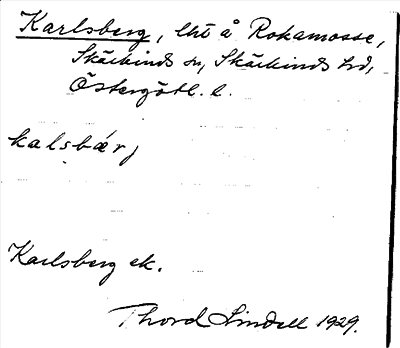 Karlsberg, lht å Rokamosse,
Skärkinds sn, Skärkinds hd,
Östergötl. l.
kalsbärj
Karlsberg ek.
Thord Lindell 1929.